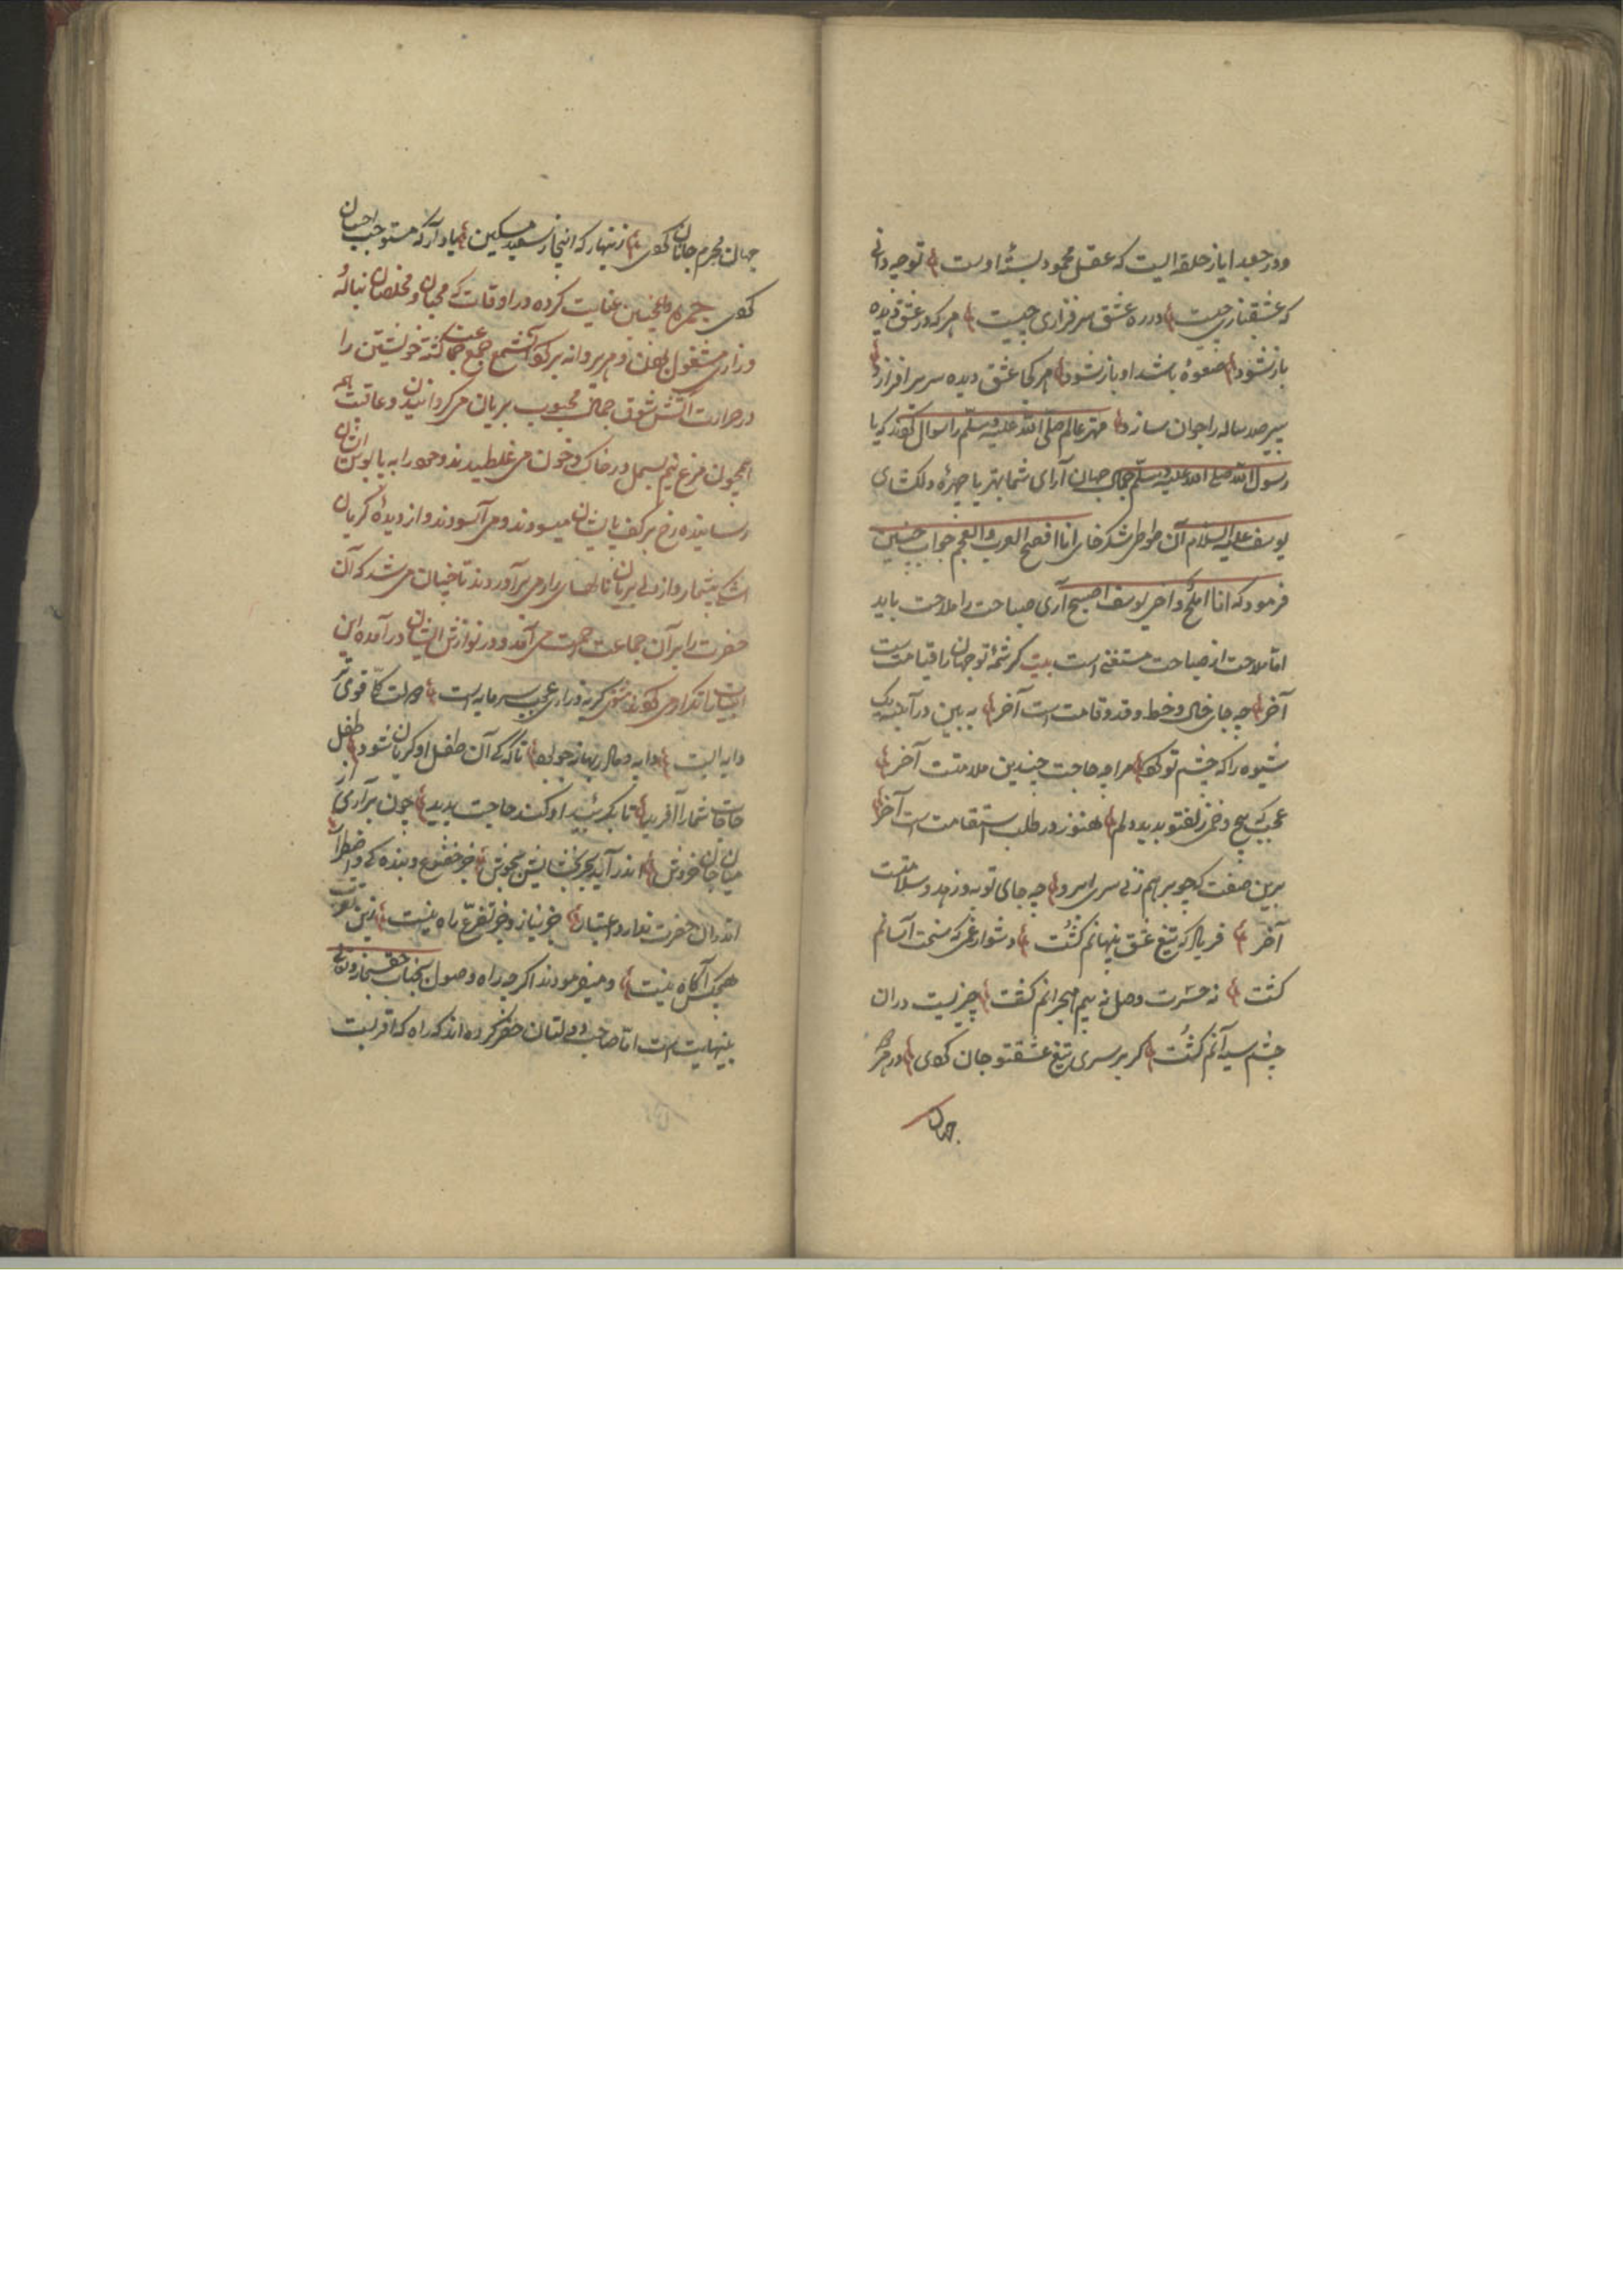 ودر جعد ایاز حلقه ایست که عقل محمود بستهٔ اوست توچه دانی
که عشقبازی چیست ودر ره عشق سرفرازی چیست هر که در عشق دیده
باز نشود صعوهٔ باشد او باز نشود هر کجا عشق دیده سر بر افرازد
پیر صد ساله را جوان سازد مهتر عالم صلی الله علیه وسلم را سوال کردند که یا
رسول الله صلی الله علیه وسلم جمال جهان آرای شما بهتر یا چهرهٔ دلکشای
یوسف علیه السلام آن طوطی شکرخای انا افصح العرب والعجم جواب چنین
فرمود که انا املح واخی یوسف اصبح آری صباحت را ملاحت باید
اما ملاحت از صباحت مستغنی است بیت کرشمهٔ تو جهان را قیامت است
آخر چه جای خال وخط وقد وقامت است آخر به بین در آینه یک
شیوه را که چشم تو کرد مرا چه حاجت چندین ملامتست آخر
عجب که پیچ وخم زلفتو بدید دلم هنوز در طلب استقامت است آخر
برین صفت که چو بر هم زنی سراسر چه جای توبه وزهد وسلامتست
آخر فریاد که تیغ عشق پنهانم کشت دشوار غمی که سخت آسانم
کشت نه حسرت وصل نه بیم هجرانم کشت چیزیست دران
چشم سیه آنم کشت گر بر سری تیغ عشقتو جان کردی در هر
جهان
جهان محرم جانان کردی زنهار که اینجا ز سعید مسکین یاد آر که مستوجب احسان
کردی حمزه همچنین عنایت کرده در اوقات که محبان ومخلصان بناله
وزاری مشغول وهر پروانه بر گرد آتش شمع جمع جماعت گشته خویشتن را
در حرارت آتش شوق جمال محبوب بریان می گردانیدن وعاقبت
همچون مرغ نیم بسمل در خاک وخون می غلطیدند وخود را به پابوس ایشان
رسانیده رخ بر کف پا ایشان میسودند ومی آسودند واز دیدهٔ گریان
اشک بیشمار واز دل بریان ناله های زار می برآوردند تا چنان می شد که آن
حضرت را بر آن جماعت رحمت می آمد ودر نوازش ایشان در آمده این
ابیات را تکرار می کردند مثنوی گریه وزاری عجب سرمایه است رحمت کلی قوی تر
دایه ایست دایه ومادر بهانه جو بود تا که کی آن طفل او گریان شود طفل
حاجات شما را آفرید تا بگریید او کند حاجت پدید چون برآری از
میان جان خروش اندر آید بحر بخشایش بجوش جز خضوع وبندگی واضطرار
اندران حضرت ندارد اعتبار جز نیاز وجز تضرع راه نیست زین
هیچکس آگاه نیست ومیفرمودند اگرچه راه وصول بجناب حق سبحانه وتعالی
بینهایت است اما صاحب دولتان حضر کرده اند که راه که اقربست